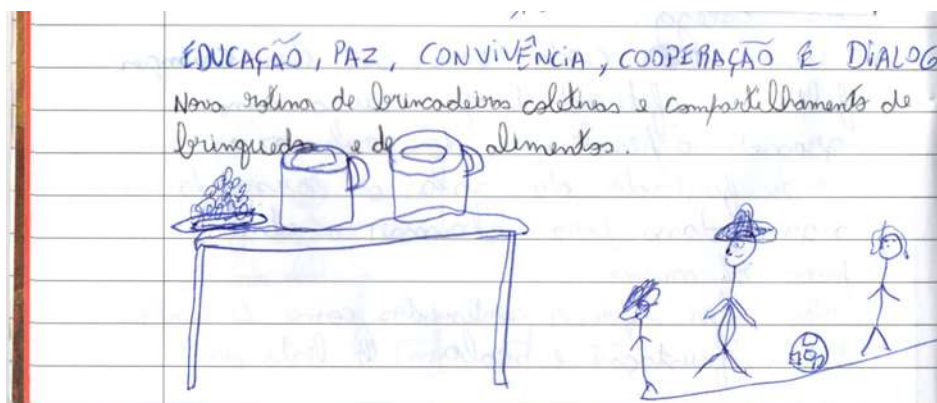 EDUCAÇÃO, PAZ, CONVIVÊNCIA, COOPERAÇÃO E DIALOG
Nova rotina de brincadeiras coletivas e compartilhamento de
brinquedos e de alimentos.